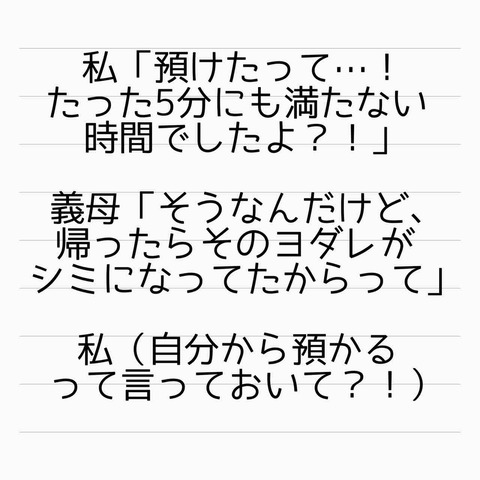 私「預けたって…！
たった5分にも満たない
時間でしたよ？！」
義母「そうなんだけど、
帰ったらそのヨダレが
シミになってたからって」
私（自分から預かる
って言っておいて？！）